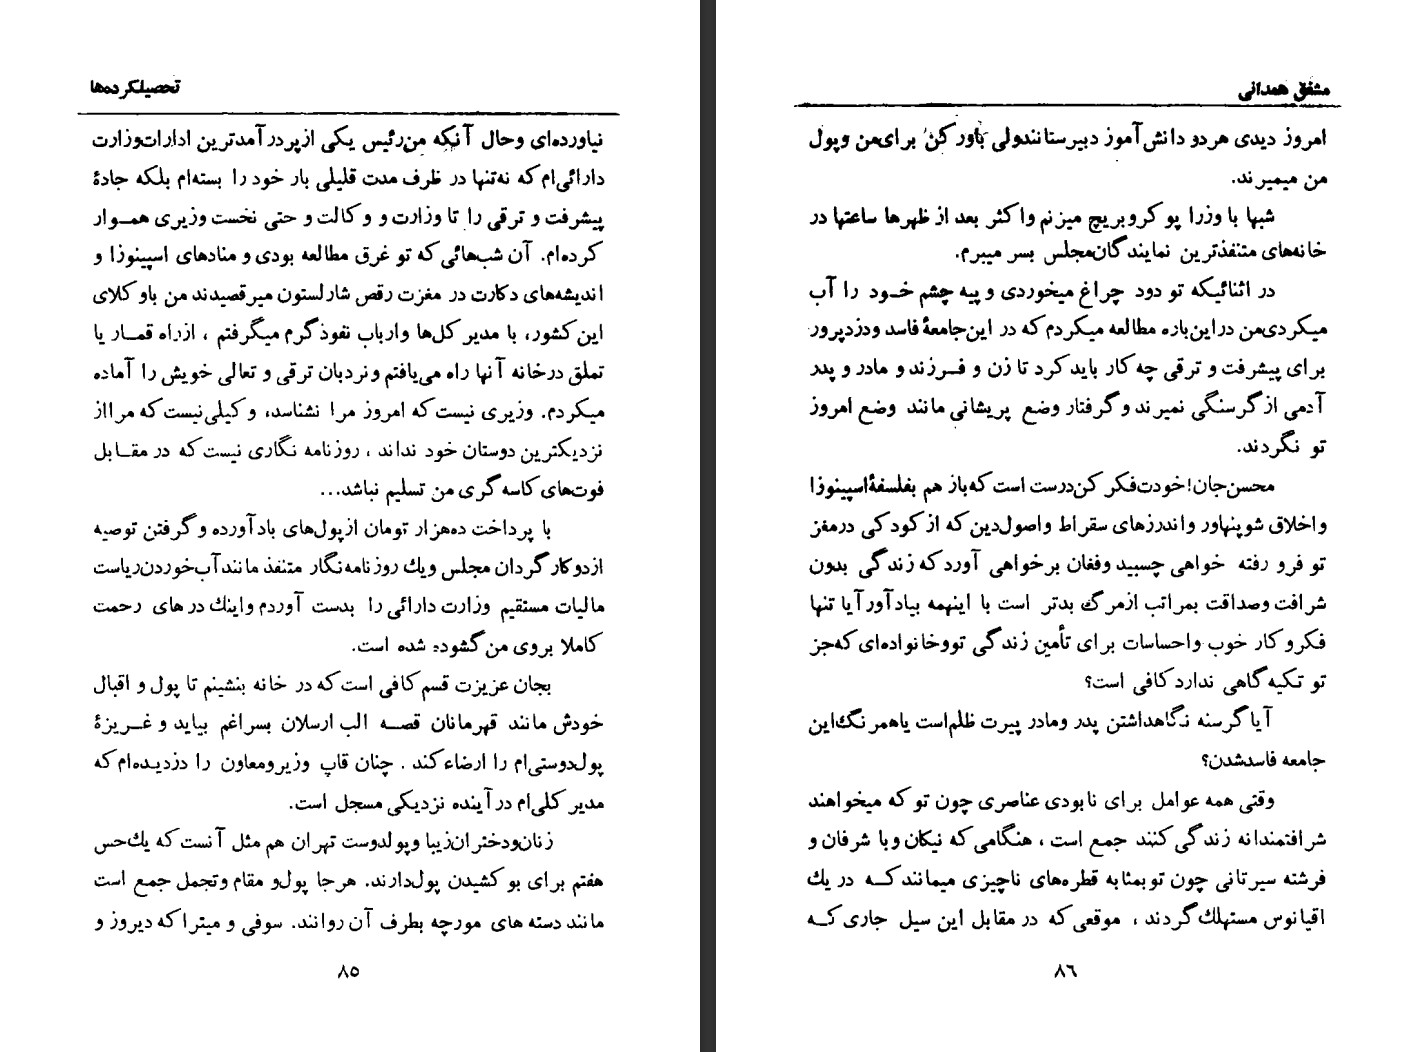 تحصیلکرده‌ها
نیاورده‌ای وحال آنکه من‌رئیس یکی ازپردرآمدترین ادارات‌وزارت
دارائی‌ام که نه‌تنها در ظرف مدت قلیلی بار خود را بسته‌ام بلکه جادهٔ
پیشرفت و ترقی را تا وزارت و و کالت و حتی نخست وزیری همــوار
کرده‌ام. آن شب‌هائی که تو غرق مطالعه بودی و منادهای اسپینوزا و
اندیشه‌های دکارت در مغزت رقص شارلستون میرقصیدند من باوکلای
این‌کشور، با مدیر کل‌ها وارباب نفوذگرم میگرفتم ، ازراه قمــار یا
تملق درخانه آنها راه می‌یافتم ونردبان ترقی و تعالی خویش را آماده
میکردم. وزیری نیست‌که امروز مرا نشناسد، وکیلی‌نیست‌که مرااز
نزدیکترین دوستان خود نداند ، روزنامه نگاری نیست‌که در مقــابل
فوت‌های کاسه گری من تسلیم نباشد...
با پرداخت ده‌هزار تومان ازپول‌های بادآورده وگرفتن توصیه
ازدوکارگردان مجلس ویك روزنامه‌نگار متنفذ مانندآب‌خوردن‌ریاست
مالیات مستقیم وزارت دارائی را بدست آوردم واینك درهای رحمت
کاملا بروی من‌گشوده شده است.
بجان عزیزت قسم‌کافی است‌که در خانه بنشینم تا پول و اقبال
خودش مانند قهرمانان قصــه الب ارسلان بسراغم بیاید و غــریزهٔ
پول‌دوستی‌ام را ارضاءکند . چنان قاپ وزیرومعاون را دزدیده‌ام‌که
مدیر کلی‌ام درآینده نزدیکی مسجل است.
زنان‌ودختران‌زیبا وپولدوست تهران هم مثل آنست که یك‌حس
هفتم برای بوکشیدن پول‌دارند. هرجا پول‌و مقام وتجمل جمع است
مانند دسته های مورچه بطرف آن روانند. سوفی و میترا که دیروز و
۸۵
مشفق همدانی
امروز دیدی هردو دانش‌آموز دبیرستانندولی باورکن برای‌من وپول
من میمیرند.
شبها با وزرا پوکروبریج میزنم واکثر بعد از ظهرها ساعتها در
خانه‌های متنفذترین نمایندگان‌مجلس بسر میبرم.
در اثنائیکه تو دود چراغ میخوردی وپیه چشم خــود را آب
میکردی‌من دراین‌باره مطالعه میکردم که در این‌جامعهٔ فاسد ودزدپرور
برای پیشرفت و ترقی چه‌کار باید کرد تا زن و فــرزند و مادر و پدر
آدمی ازگرسنگی نمیرند وگرفتار وضع پریشانی مانند وضع امروز
تو نگردند.
محسن‌جان! خودت‌فکرکن‌درست است که‌باز هم بفلسفهٔ‌اسپینوزا
واخلاق شوپنهاور واندرزهای سقراط واصول‌دین که ازکودکی درمغز
تو فرو رفته خواهی چسبید وفغان برخواهی آوردکه زندگی بدون
شرافت وصداقت بمراتب ازمرگ بدتر است با اینهمه بیادآورآیا تنها
فکروکار خوب واحساسات برای تأمین زندگی تووخانواده‌ای که‌جز
تو تکیه‌گاهی نداردکافی است؟
آیاگرسنه نگاهداشتن پدر ومادر پیرت ظلم‌است یاهمرنگ‌این
جامعه فاسدشدن؟
وقتی همه عوامل برای نابودی عناصری چون تو که میخواهند
شرافتمندانه زندگی‌کنند جمع است ، هنگامی‌که نیکان وبا شرفان و
فرشته سیرتانی چون توبمثابه قطره‌های ناچیزی میمانندکــه در یك
اقیانوس مستهلك‌گردند ، موقعی‌که در مقابل این سیل جاری کــه
۸۶